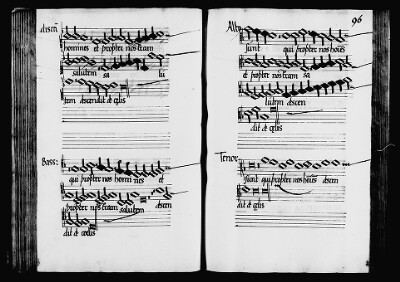 homines et propter nostram
salutem
tem descendit de celis
Bass:
qui propter nos homines et
propter nostram salutem descen
dit de celis
96
Alt
sunt qui propter nos
et propter nostram sa
lutem descen
dit de celis
Tenor
qui propter nos descen
dit de celis